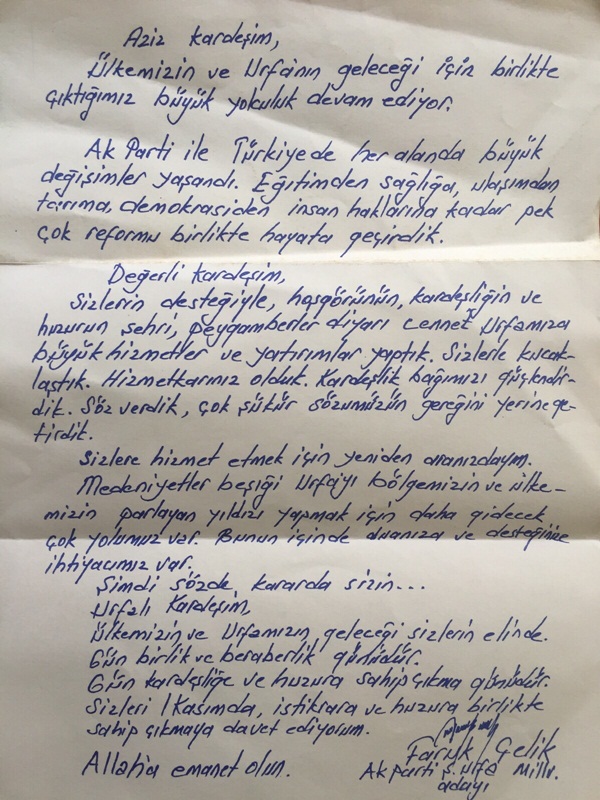 Aziz kardeşim,
Ülkemizin ve Urfa'nın geleceği için birlikte
çıktığımız büyük yolculuk devam ediyor.
Ak Parti ile Türkiyede her alanda büyük
değişimler yaşandı. Eğitimden sağlığa, ulaşımdan
tarıma, demokrasiden insan haklarına kadar pek
çok reformu birlikte hayata geçirdik.
Değerli kardeşim,
Sizlerin desteğiyle, hoşgörünün, kardeşliğin ve
huzurun şehri, peygamberler diyarı cennet Urfamıza
büyük hizmetler ve yatırımlar yaptık. Sizlerle kucak-
laştık. Hizmetkarınız olduk. Kardeşlik bağımızı güçlendir-
dik. Söz verdik, çok şükür sözümüzün gereğini yerine ge-
tirdik.
Sizlere hizmet etmek için yeniden aranızdayım.
Medeniyetler beşiği Urfayı bölgemizin ve ülke-
mizin parlayan yıldızı yapmak için daha gidecek
çok yolumuz var. Bunun içinde duanıza ve desteğinize
ihtiyacımız var.
Şimdi sözde, kararda sizin...
Urfalı Kardeşim,
Ülkemizin ve Urfamızın geleceği sizlerin elinde.
Gün birlik ve beraberlik günüdür.
Gün kardeşliğe ve huzura sahip çıkma günüdür.
Sizleri 1 Kasımda, istikrara ve huzura birlikte
sahip çıkmaya davet ediyorum.
Allah'a emanet olun.
Faruk Çelik
Ak parti Ş.Urfa Millv.
adayı